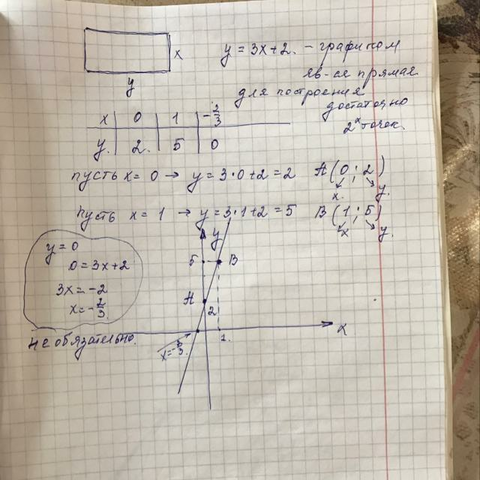 x
y
y = 3x + 2. - графиком
яв-ся прямая
для построения
достаточно
2х точек.
x | 0 | 1 | -2/3
y | 2. | 5 | 0
пусть x = 0 → y = 3·0+2 = 2 A (0 ; 2)
x. y.
пусть x = 1 → y = 3·1+2 = 5 B (1 ; 5)
x y.
y = 0
0 = 3x + 2
3x = -2
x = -2/3
не обязательно.
y
5 B
A
2
x = -2/3
1.
x